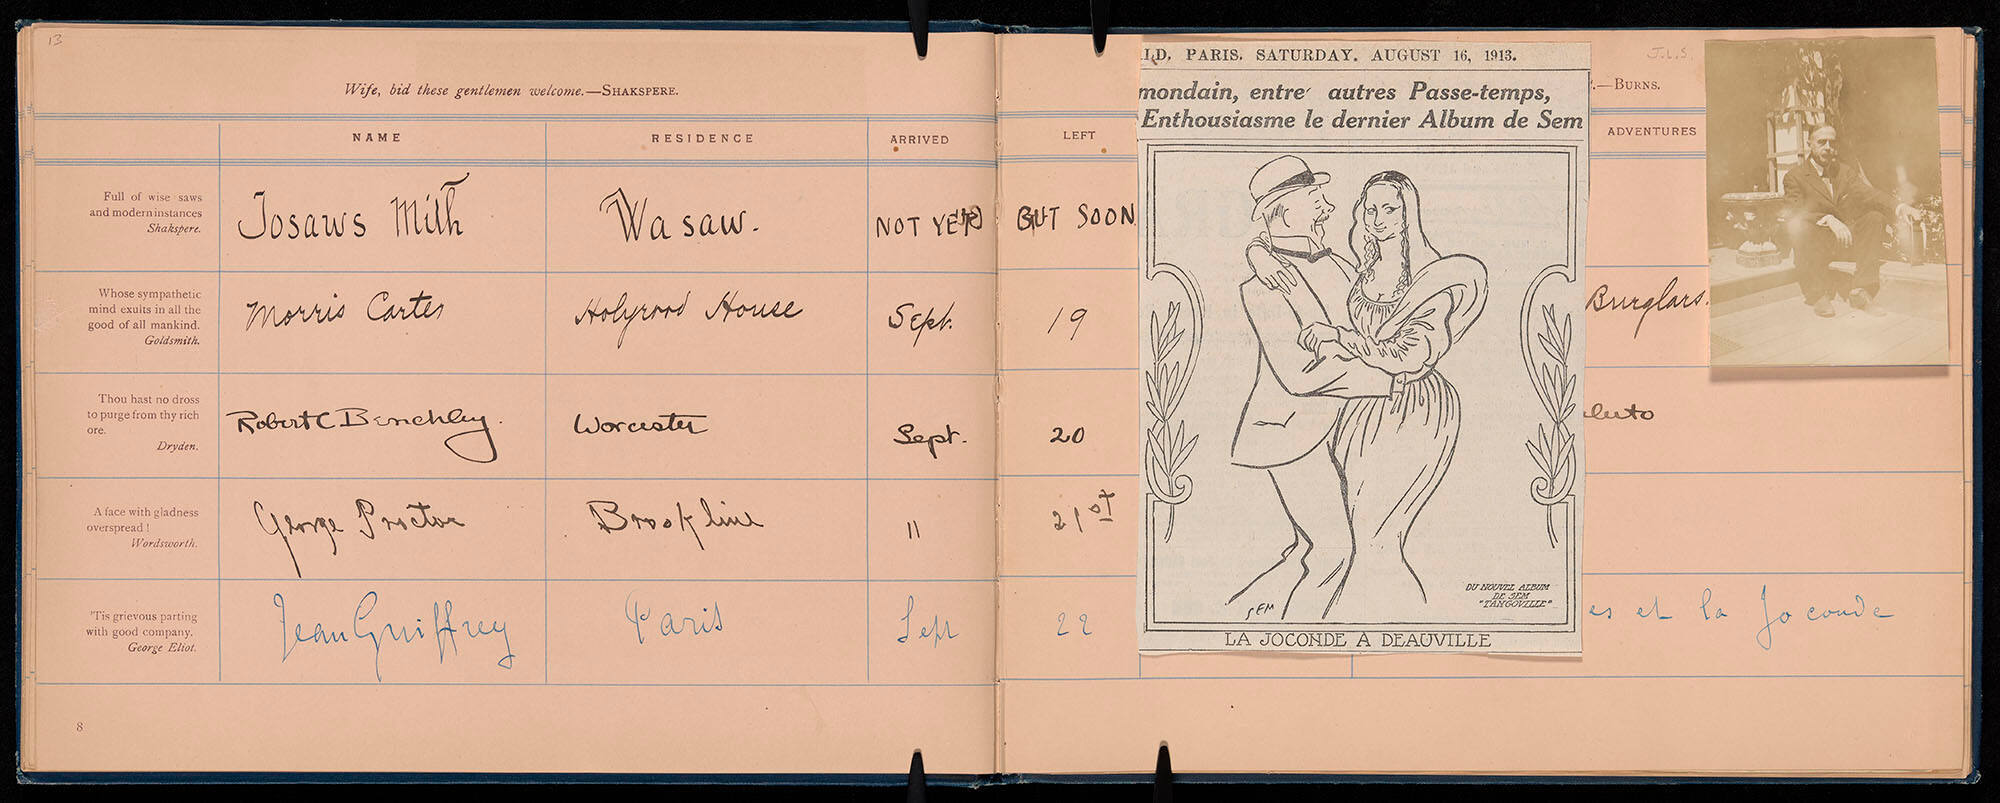 13
Wife, bid these gentlemen welcome.—SHAKSPERE.
NAME RESIDENCE ARRIVED
Full of wise saws
and modern instances
Shakspere.
Josaws Mith Wasaw. NOT YET
Whose sympathetic
mind exults in all the
good of all mankind.
Goldsmith.
Morris Carter Holyrood House Sept.
Thou hast no dross
to purge from thy rich
ore.
Dryden.
Robert C Benchley. Worcester Sept.
A face with gladness
overspread!
Wordsworth.
George Proctor Brookline "
'Tis grievous parting
with good company.
George Eliot.
Jean Guiffrey Paris Sept
8
LEFT
BUT SOON
19
20
21st
22
PARIS. SATURDAY. AUGUST 16, 1913.
mondain, entre autres Passe-temps,
Enthousiasme le dernier Album de Sem
SEM
DU NOUVEL ALBUM
DE SEM
"TANGOVILLE"
LA JOCONDE A DEAUVILLE
J.L.S.
—BURNS.
ADVENTURES
Burglars.
es et la Joconde